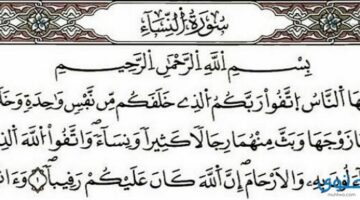 سُورَةُ النِّسَاءِ
بِسْمِ اللَّهِ الرَّحْمَٰنِ الرَّحِيمِ
هَا النَّاسُ اتَّقُوا رَبَّكُمُ الَّذِي خَلَقَكُم مِّن نَّفْسٍ وَاحِدَةٍ وَخَلَ
زَوْجَهَا وَبَثَّ مِنْهُمَا رِجَالًا كَثِيرًا وَنِسَاءً وَاتَّقُوا اللَّهَ الذِ
لُونَ بِهِ وَالْأَرْحَامَ إِنَّ اللَّهَ كَانَ عَلَيْكُمْ رَقِيبًا ١ وَءَا